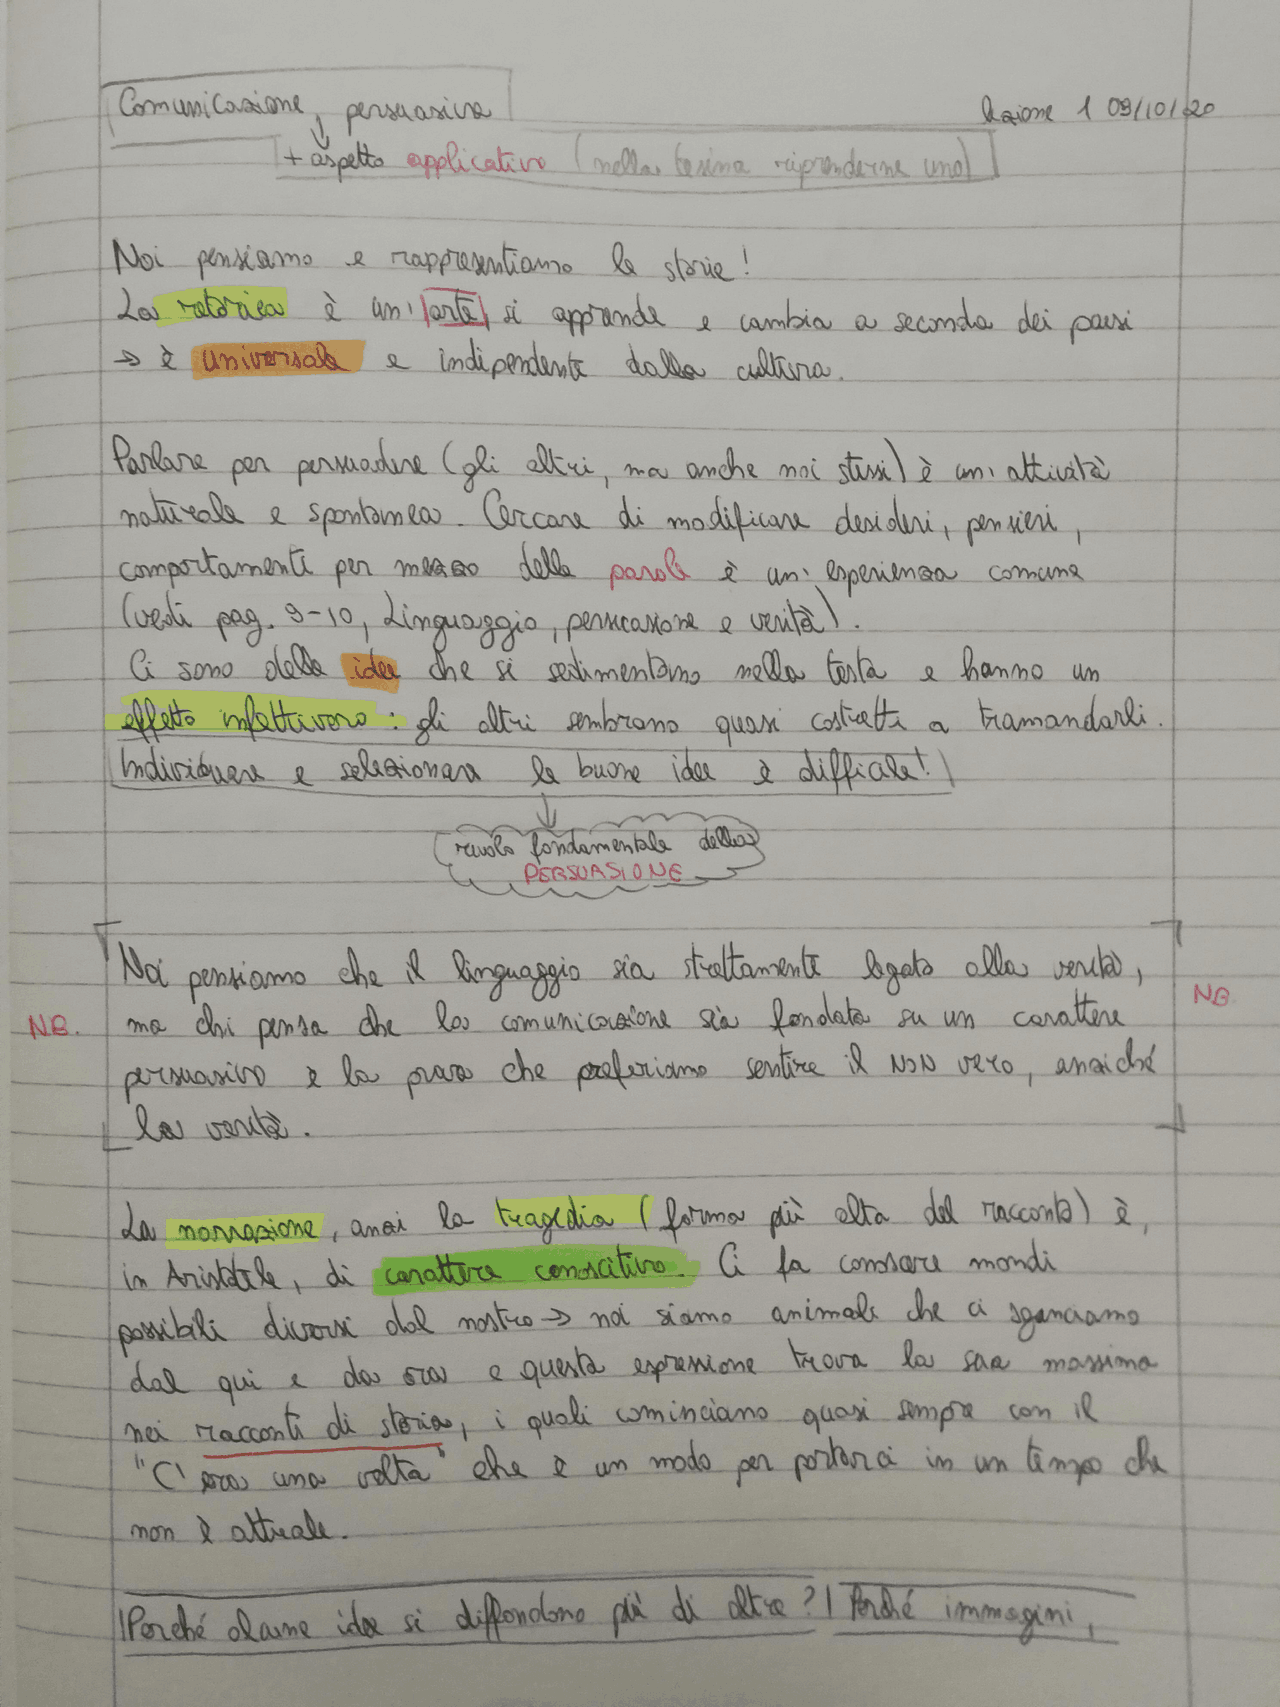 Comunicazione persuasiva
Lezione 1 09/10/20
+ aspetto applicativo (nella tesina riprenderne uno)
Noi pensiamo e rappresentiamo le storie!
La retorica è un' arte si apprende e cambia a seconda dei paesi
→ è universale e indipendente dalla cultura.
Parlare per persuadere (gli altri, ma anche noi stessi) è un' attività
naturale e spontanea. Cercare di modificare desideri, pensieri,
comportamenti per mezzo delle parole è un' esperienza comune
(vedi pag. 9-10, Linguaggio, persuasione e verità).
Ci sono delle idee che si sedimentano nella testa e hanno un
effetto infettivo: gli altri sembrano quasi costretti a tramandarli.
Individuare e selezionare le buone idee è difficile!
↓
ruolo fondamentale della
PERSUASIONE
Noi pensiamo che il linguaggio sia strettamente legato alla verità,
NB.
NB.
ma chi pensa che la comunicazione sia fondata su un carattere
persuasivo è la prova che preferiamo sentire il NON vero, anziché
la verità.
La narrazione, anzi la tragedia (forma più alta del racconto) è,
in Aristotele, di carattere conoscitivo. Ci fa conoscere mondi
possibili diversi dal nostro → noi siamo animali che ci sganciamo
dal qui e da ora e questa espressione trova la sua massima
nei racconti di storia, i quali cominciano quasi sempre con il
"C'era una volta" che è un modo per portarci in un tempo che
non è attuale.
Perché alcune idee si diffondono più di altre? Perché immagini,